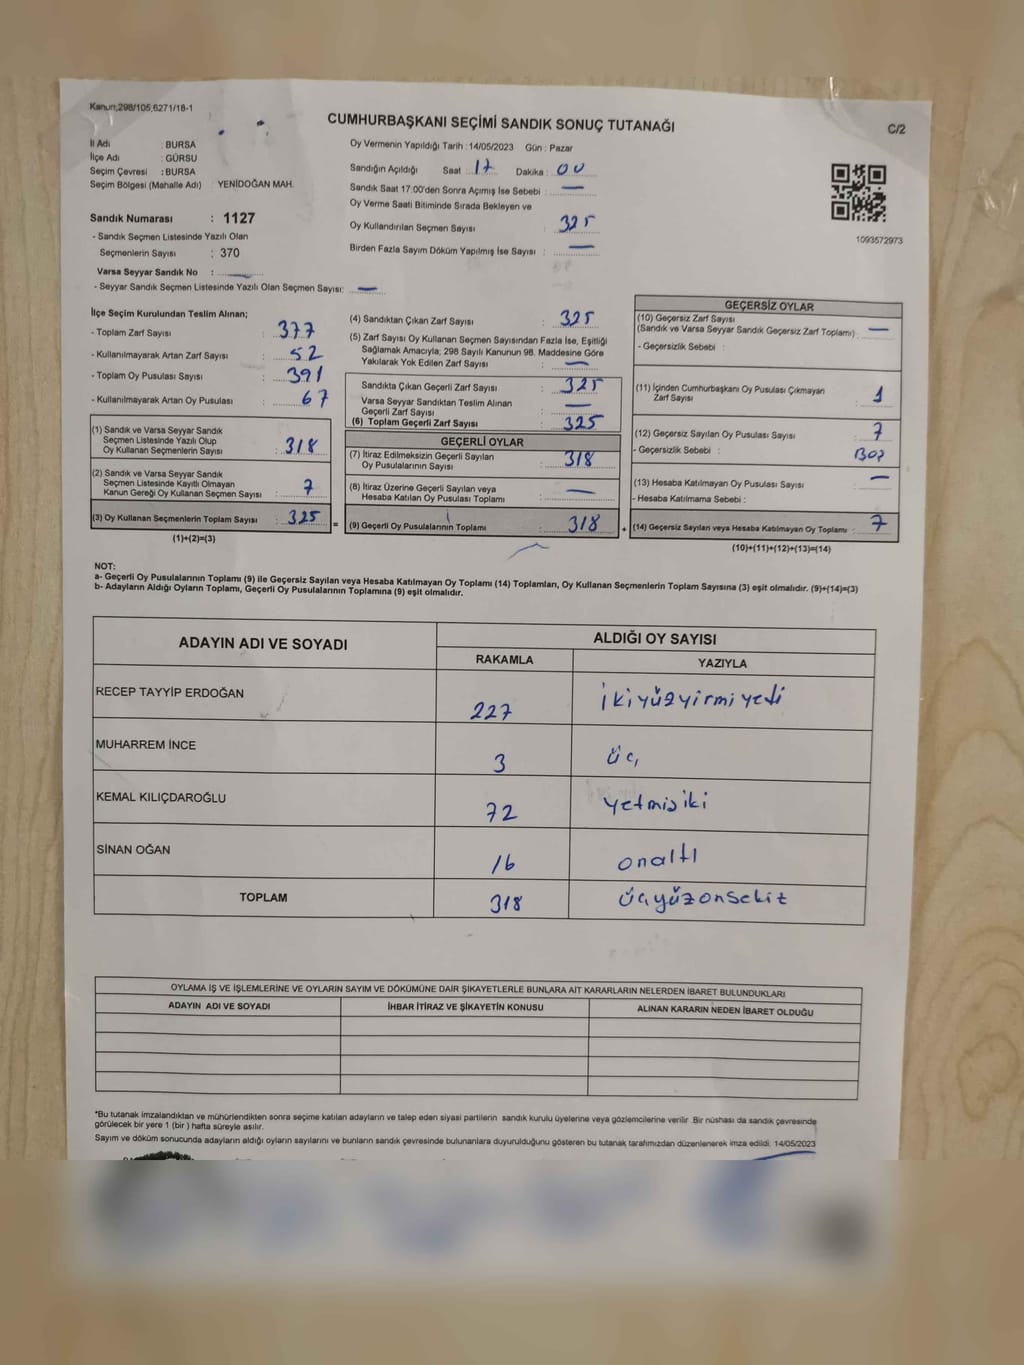 Kanun:298/105,6271/18-1
CUMHURBAŞKANI SEÇİMİ SANDIK SONUÇ TUTANAĞI
C/2
İl Adı : BURSA
İlçe Adı : GÜRSU
Seçim Çevresi : BURSA
Seçim Bölgesi (Mahalle Adı) : YENİDOĞAN MAH.
Sandık Numarası : 1127
- Sandık Seçmen Listesinde Yazılı Olan
Seçmenlerin Sayısı : 370
Varsa Seyyar Sandık No :
- Seyyar Sandık Seçmen Listesinde Yazılı Olan Seçmen Sayısı: —
Oy Vermenin Yapıldığı Tarih : 14/05/2023 Gün : Pazar
Sandığın Açıldığı Saat : 17 Dakika : 00
Sandık Saat 17.00'den Sonra Açımış İse Sebebi : —
Oy Verme Saati Bitiminde Sırada Bekleyen ve
Oy Kullandırılan Seçmen Sayısı : 325
Birden Fazla Sayım Döküm Yapılmış İse Sayısı : —
1093572973
İlçe Seçim Kurulundan Teslim Alınan;
- Toplam Zarf Sayısı : 377
- Kullanılmayarak Artan Zarf Sayısı : 52
- Toplam Oy Pusulası Sayısı : 391
- Kullanılmayarak Artan Oy Pusulası : 67
(1) Sandık ve Varsa Seyyar Sandık
Seçmen Listesinde Yazılı Olup
Oy Kullanan Seçmenlerin Sayısı : 318
(2) Sandık ve Varsa Seyyar Sandık
Seçmen Listesinde Kayıtlı Olmayan
Kanun Gereği Oy Kullanan Seçmen Sayısı : 7
(3) Oy Kullanan Seçmenlerin Toplam Sayısı : 325
(1)+(2)=(3)
=
(4) Sandıktan Çıkan Zarf Sayısı : 325
(5) Zarf Sayısı Oy Kullanan Seçmen Sayısından Fazla İse, Eşitliği
Sağlamak Amacıyla, 298 Sayılı Kanunun 98. Maddesine Göre
Yakılarak Yok Edilen Zarf Sayısı : —
Sandıkta Çıkan Geçerli Zarf Sayısı : 325
Varsa Seyyar Sandıktan Teslim Alınan
Geçerli Zarf Sayısı : —
(6) Toplam Geçerli Zarf Sayısı : 325
GEÇERLİ OYLAR
(7) İtiraz Edilmeksizin Geçerli Sayılan
Oy Pusulalarının Sayısı : 318
(8) İtiraz Üzerine Geçerli Sayılan veya
Hesaba Katılan Oy Pusulası Toplamı : —
(9) Geçerli Oy Pusulalarının Toplamı : 318
+
GEÇERSİZ OYLAR
(10) Geçersiz Zarf Sayısı
(Sandık ve Varsa Seyyar Sandık Geçersiz Zarf Toplamı) : —
- Geçersizlik Sebebi :
(11) İçinden Cumhurbaşkanı Oy Pusulası Çıkmayan
Zarf Sayısı : 1
(12) Geçersiz Sayılan Oy Pusulası Sayısı : 7
- Geçersizlik Sebebi :
(13) Hesaba Katılmayan Oy Pusulası Sayısı : —
- Hesaba Katılmama Sebebi :
(14) Geçersiz Sayılan veya Hesaba Katılmayan Oy Toplamı : 7
(10)+(11)+(12)+(13)=(14)
NOT:
a- Geçerli Oy Pusulalarının Toplamı (9) ile Geçersiz Sayılan veya Hesaba Katılmayan Oy Toplamı (14) Toplamları, Oy Kullanan Seçmenlerin Toplam Sayısına (3) eşit olmalıdır. (9)+(14)=(3)
b- Adayların Aldığı Oyların Toplamı, Geçerli Oy Pusulalarının Toplamına (9) eşit olmalıdır.
ADAYIN ADI VE SOYADI ALDIĞI OY SAYISI
RAKAMLA YAZIYLA
RECEP TAYYİP ERDOĞAN 227 ikiyüzyirmiyedi
MUHARREM İNCE 3 üç
KEMAL KILIÇDAROĞLU 72 yetmişiki
SİNAN OĞAN 16 onaltı
TOPLAM 318 üçyüzonsekiz
OYLAMA İŞ VE İŞLEMLERİNE VE OYLARIN SAYIM VE DÖKÜMÜNE DAİR ŞİKAYETLERLE BUNLARA AİT KARARLARIN NELERDEN İBARET BULUNDUKLARI
ADAYIN ADI VE SOYADI İHBAR İTİRAZ VE ŞİKAYETİN KONUSU ALINAN KARARIN NEDEN İBARET OLDUĞU
*Bu tutanak imzalandıktan ve mühürlendikten sonra seçime katılan adayların ve talep eden siyasi partilerin sandık kurulu üyelerine veya gözlemcilerine verilir. Bir nüshası da sandık çevresinde
görülecek bir yere 1 (bir) hafta süreyle asılır.
Sayım ve döküm sonucunda adayların aldığı oyların sayılarını ve bunların sandık çevresinde bulunanlara duyurulduğunu gösteren bu tutanak tarafımızdan düzenlenerek imza edildi. 14/05/2023